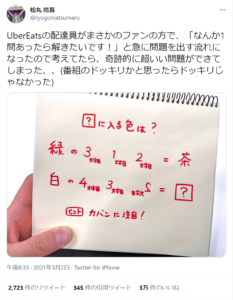 松丸 亮吾
@ryogomatsumaru
UberEatsの配達員がまさかのファンの方で、「なんか1
問あったら解きたいです！」と急に問題を出す流れに
なったので考えてたら、奇跡的に超いい問題ができて
しまった、、(番組のドッキリかと思ったらドッキリじ
ゃなかった)
?に入る色は?
緑の 3 1 2 = 茶
白の 4 3 S = ?
ヒント カバンに注目!
午後8:33 · 2021年3月2日 · Twitter for iPhone
2,723 件のリツイート 345 件の引用ツイート 3万 件のいいね